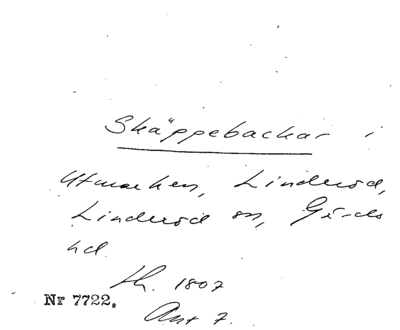 Skäppebackar i
Utmarken, Linderöd,
Linderöd sn, Gärds
hd.
Lh. 1807
Nr 7722.
Ant 7.